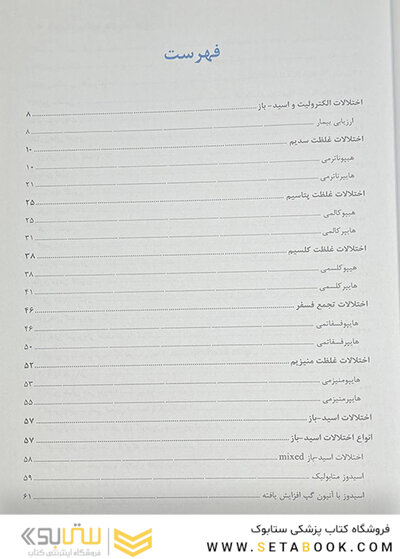 فهرست
اختلالات الکترولیت و اسید-باز ۸
ارزیابی بیمار ۸
اختلالات غلظت سدیم ۱۰
هیپوناترمی ۱۰
هایپرناترمی ۲۱
اختلالات غلظت پتاسیم ۲۵
هیپوکالمی ۲۵
هایپرکالمی ۳۱
اختلالات غلظت کلسیم ۳۸
هیپوکلسمی ۳۸
هایپرکلسمی ۴۱
اختلالات تجمع فسفر ۴۶
هایپوفسفاتمی ۴۶
هایپرفسفاتمی ۵۰
اختلالات غلظت منیزیم ۵۲
هایپومنیزمی ۵۳
هایپرمنیزمی ۵۵
اختلالات اسید-باز ۵۷
انواع اختلالات اسید-باز ۵۷
اختلالات اسید-باز mixed ۵۸
اسیدوز متابولیک ۵۹
اسیدوز با آنیون گپ افزایش یافته ۶۱
فروشگاه کتاب پزشکی ستابوک
WWW.SETABOOK.COM
ستابوک
فروشگاه اینترنتی کتاب